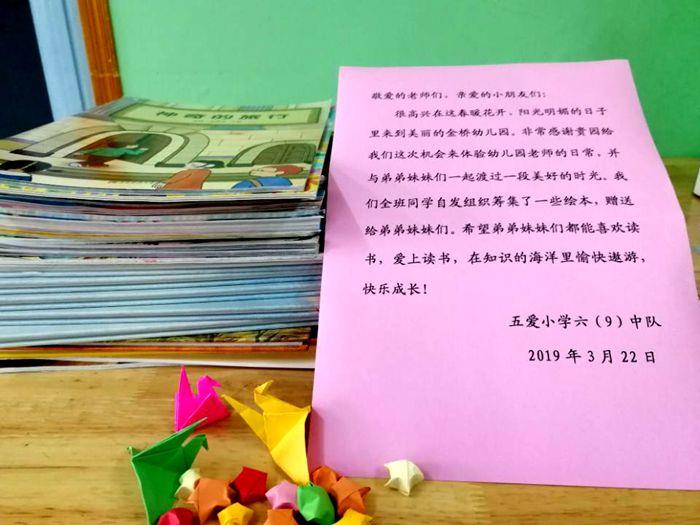 神奇的旅行
敬爱的老师们、亲爱的小朋友们：
很高兴在这春暖花开、阳光明媚的日子
里来到美丽的金桥幼儿园。非常感谢贵园给
我们这次机会来体验幼儿园老师的日常，并
与弟弟妹妹们一起渡过一段美好的时光。我
们全班同学自发组织筹集了一些绘本，赠送
给弟弟妹妹们。希望弟弟妹妹们都能喜欢读
书，爱上读书，在知识的海洋里愉快遨游，
快乐成长！
五爱小学六（9）中队
2019 年 3 月 22 日